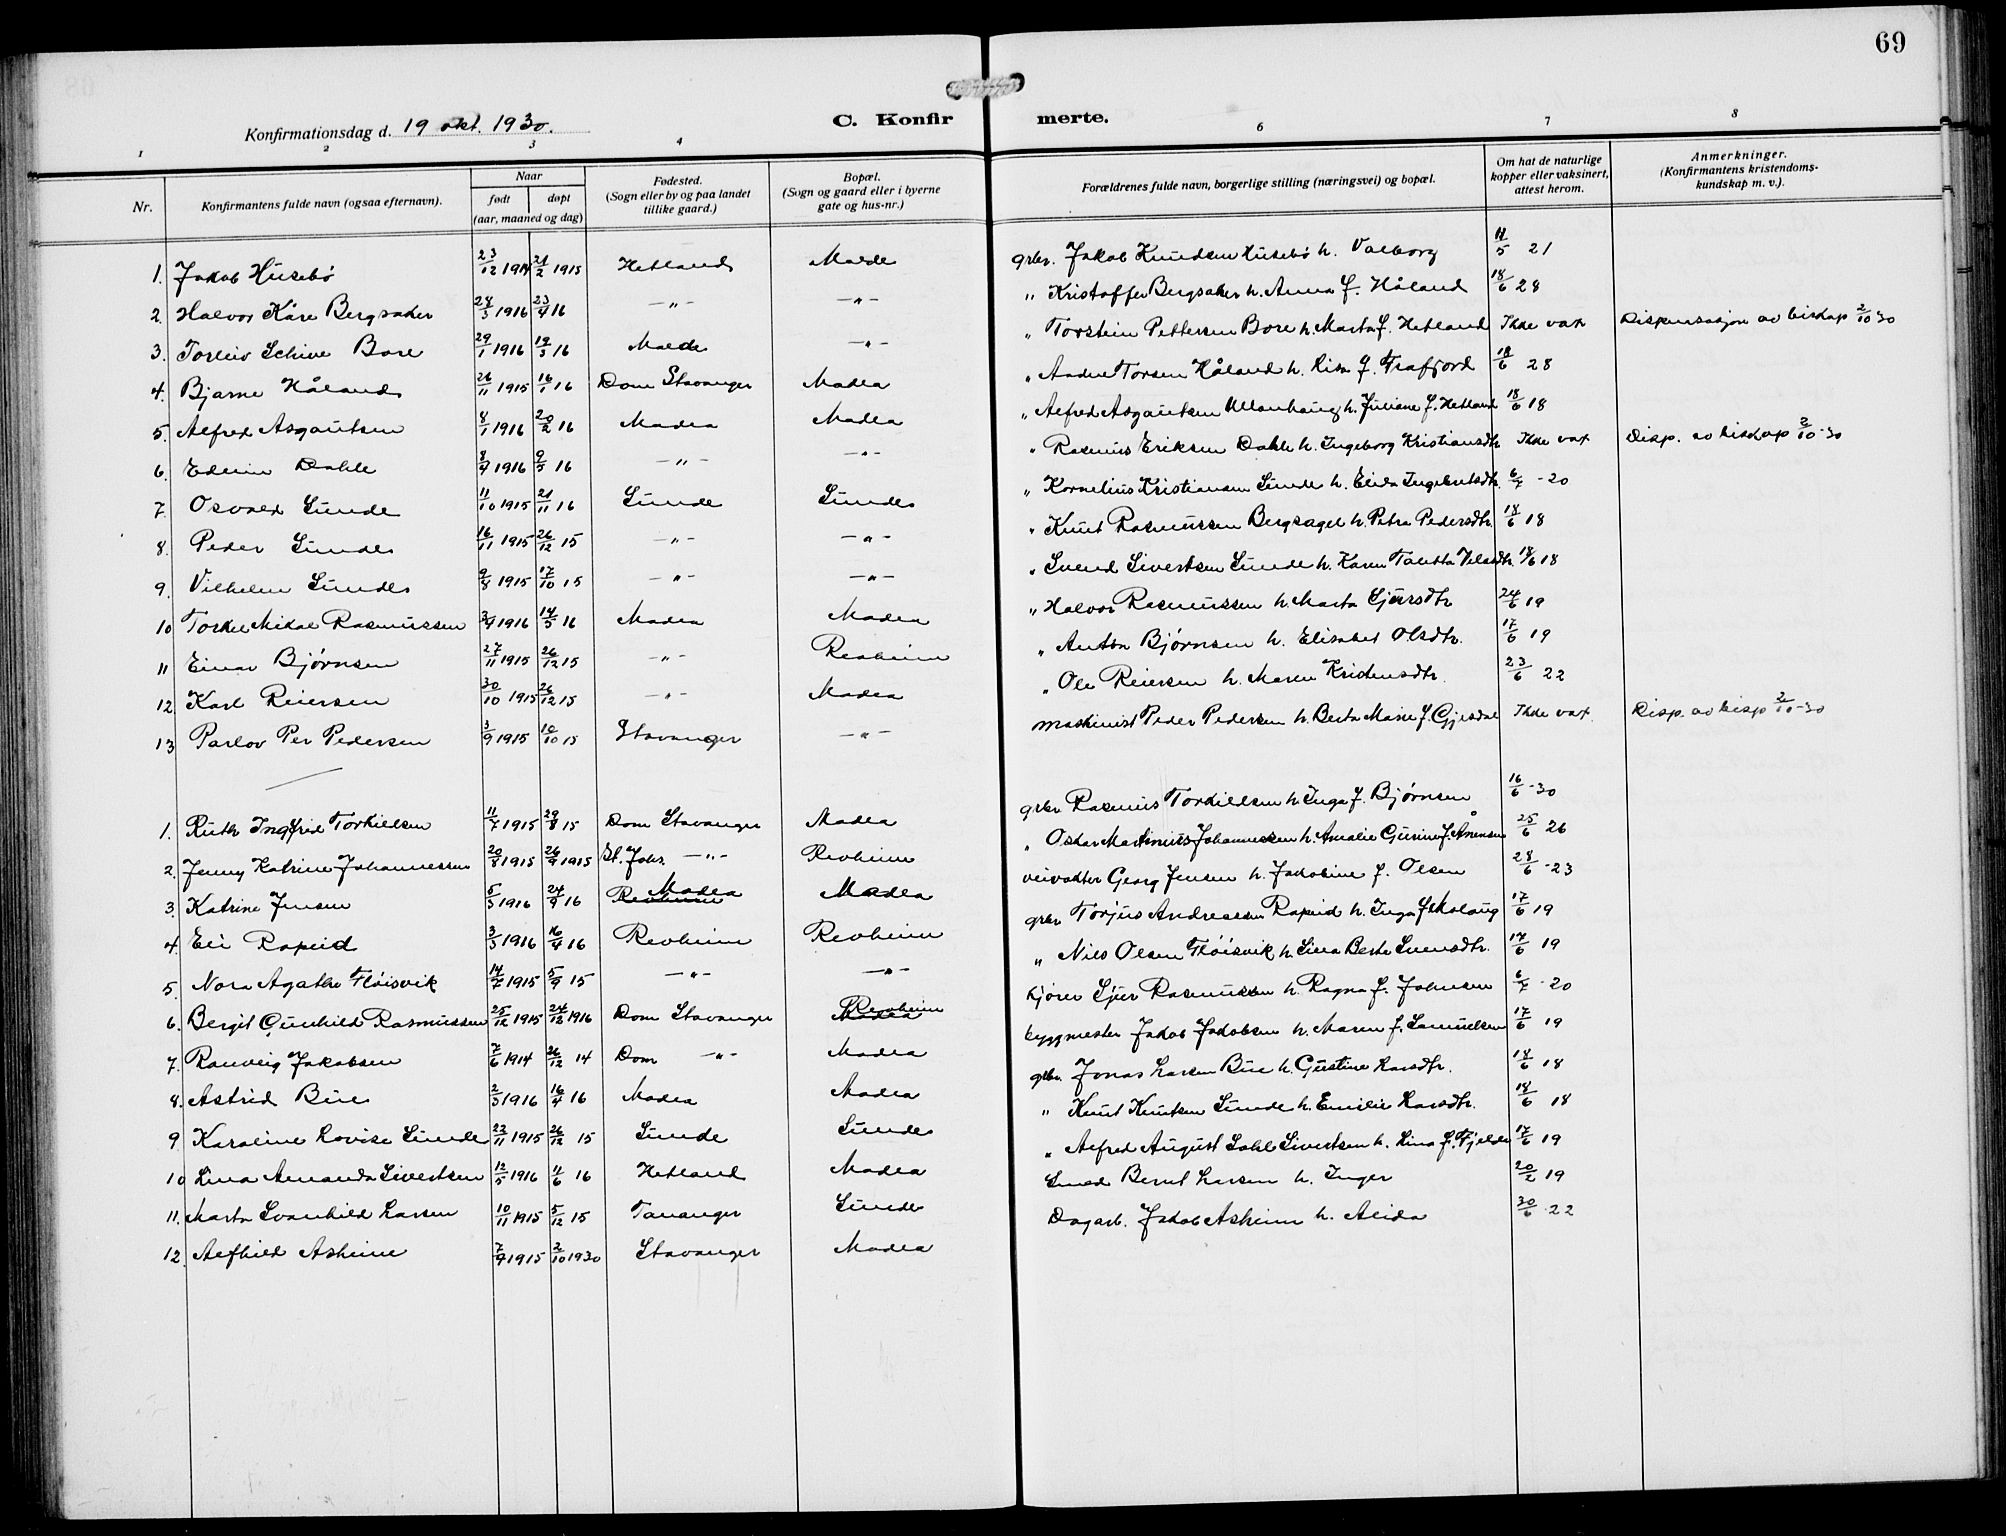 69
Konfirmationsdag d. 19 okt. 1930.
C. Konfirmerte.
1 2 3 4 6 7 8
Nr. Konfirmantens fulde navn (ogsaa efternavn). Naar født døpt (aar, maaned og dag) Fødested. (Sogn eller by og paa landet tillike gaard.) Bopæl. (Sogn og gaard eller i byerne gate og hus-nr.) Forældrenes fulde navn, borgerlige stilling (næringsvei) og bopæl. Om hat de naturlige kopper eller vaksinert, attest herom. Anmerkninger. (Konfirmantens kristendomskundskap m. v.).
1. Jakob Husebø 23/12 1914 21/2 1915 Hetland Madla grbr. Jakob Knudsen Husebø h. Valborg 11/5 21
2. Halvor Kåre Bergsaker 24/3 1916 23/4 16 —"— —"— " Kristoffer Bergsaker h. Anna f. Håland 18/6 28
3. Torleiv Schive Bore 29/1 1916 19/3 16 Madla —"— " Torstein Pettersen Bore h. Marta f. Hetland Ikke vax Dispensasjon av biskop 2/10 30
4. Bjarne Håland 26/11 1915 16/1 16 Dom Stavanger Madla " Andre Torsen Håland h. Lisa f. Frafjord 18/6 28
5. Alfred Asgautsen 8/1 1916 20/2 16 Madla Madla " Alfred Asgautsen Ullenhaug h. Juliane f. Hetland 18/6 18
6. Edvin Dahle 8/4 1916 9/5 16 —"— —"— " Rasmus Eriksen Dahle h. Ingeborg Kristiansdtr Ikke vax Disp. av biskop 2/10-30
7. Osvald Sunde 11/10 1915 21/11 16 Sunde Sunde " Kornelius Kristiansen Sunde h. Elida Ingebretsdtr. 6/7 - 20
8. Peder Sunde 16/11 1915 26/12 15 —"— —"— " Knut Rasmussen Bergsagel h. Petra Pedersdtr. 18/6 18
9. Vilhelm Sunde 9/8 1915 17/10 15 —"— —"— " Svend Sivertsen Sunde h. Karen 18/6 18
10 Torkel Mikal Rasmussen 3/4 1916 14/5 16 Madla Madla " Halvor Rasmussen h. Marta Sjursdtr 24/6 19
11 Einar Bjørnsen 27/11 1915 26/12 15 —"— Revheim " Anton Bjørnsen h. Elisabet Olsdtr. 17/6 19
12. Karl Reiersen 30/10 1915 26/12 15 —"— Madla " Ole Reiersen h. Maren Kristensdtr. 23/6 22
13 Parlov Per Pedersen 3/9 1915 10/10 15 Stavanger —"— maskinist Peder Pedersen h. Berta Marie f. Gjesdal Ikke vax. Disp. av bisp 2/10-30
1. Ruth Ingfrid Torkildsen 11/7 1915 29/8 15 Dom Stavanger Madla grbr Rasmus Torkildsen h. Inga f. Bjørnsen 16/6-30
2. Jenny Katrine Johannessen 20/8 1915 26/9 1915 St. Johs. —"— Revheim " Oskar Martinius Johannessen h. Amalie Gurine f. Ånensen 25/6 26
3. Katrine Jensen 5/3 1916 24/4 16 Revheim Madla Madla veivokter Georg Jensen h. Jakobine f. Olsen 28/6-23
4. Eli Rapeid 3/3 1916 16/4 16 Revheim Revheim grbr Torjus Andreassen Rapeid h. Inga f. Molaug 17/6 19
5. Nora Agathe Fløisvik 14/7 1915 5/9 15 —"— —"— " Nils Olsen Fløisvik h. Lina Berte Svensdtr. 17/6 19
6. Bergit Gunhild Rasmussen 25/12 1915 24/12 1916 Dom Stavanger Madla Revheim kjører Sjur Rasmussen h. Ragna f. Johnsen 6/7 - 20
7. Ranveig Jakobsen 7/6 1914 26/12 14 Dom —"— Madla byggmester Jakob Jakobsen h. Maren f. Samuelsen 17/6 19
8. Astrid Bue 2/3 1916 16/4 16 Madla Madla grbr. Jonas Larsen Bue h. Gustine Larsdtr. 18/6 18
9 Karoline Lovise Sunde 23/11 1915 26/12 15 Sunde Sunde " Knut Knutsen Sunde h. Emilie Larsdtr. 18/6 18
10 Lina Amanda Sivertsen 12/5 1916 11/6 16 Hetland Madla " Alfred August Dahl Sivertsen h. Lina f. Fjelde 17/6 19
11. Marta Svanhild Larsen 10/11 1915 5/12 15 Tananger Sunde Smed Bernt Larsen h. Inger 20/2 19
12. Alfhild Asheim 7/9 1915 2/10 1930 Stavanger Madla Dagarb. Jakob Asheim h. Alida 30/6 22